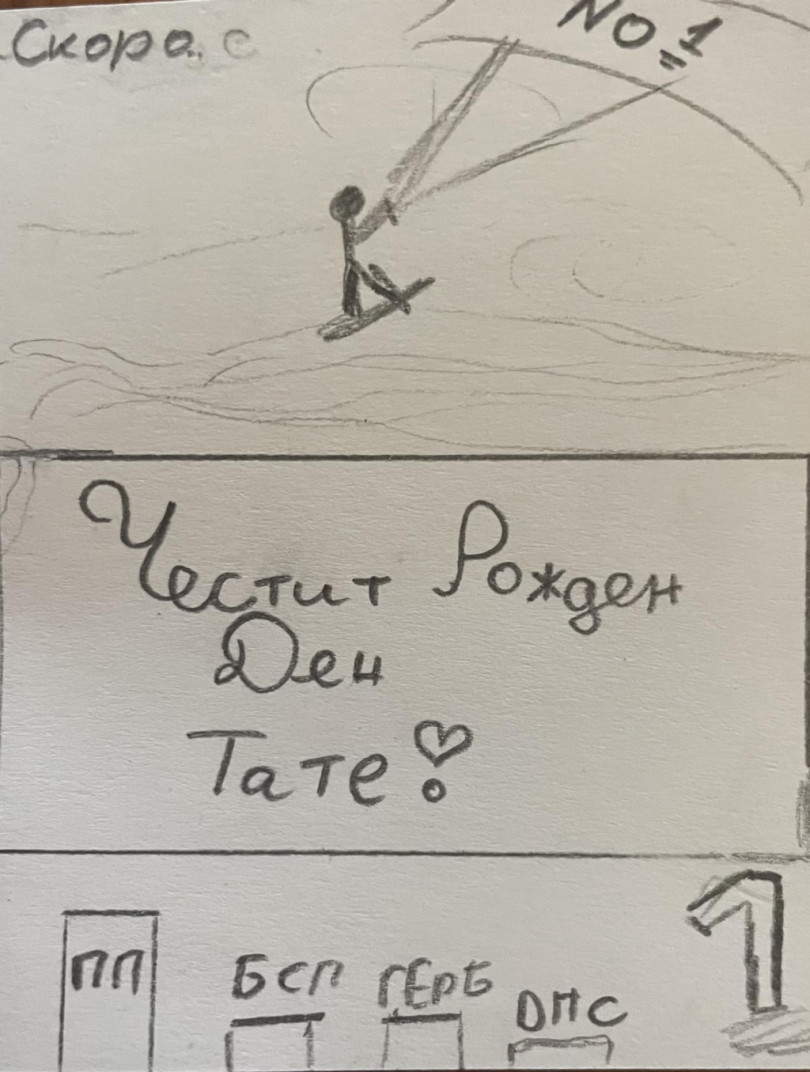 Скоро..
No.1
Честит Рожден
Ден
Тате!
ПП
БСП
ГЕРБ
ДПС
1